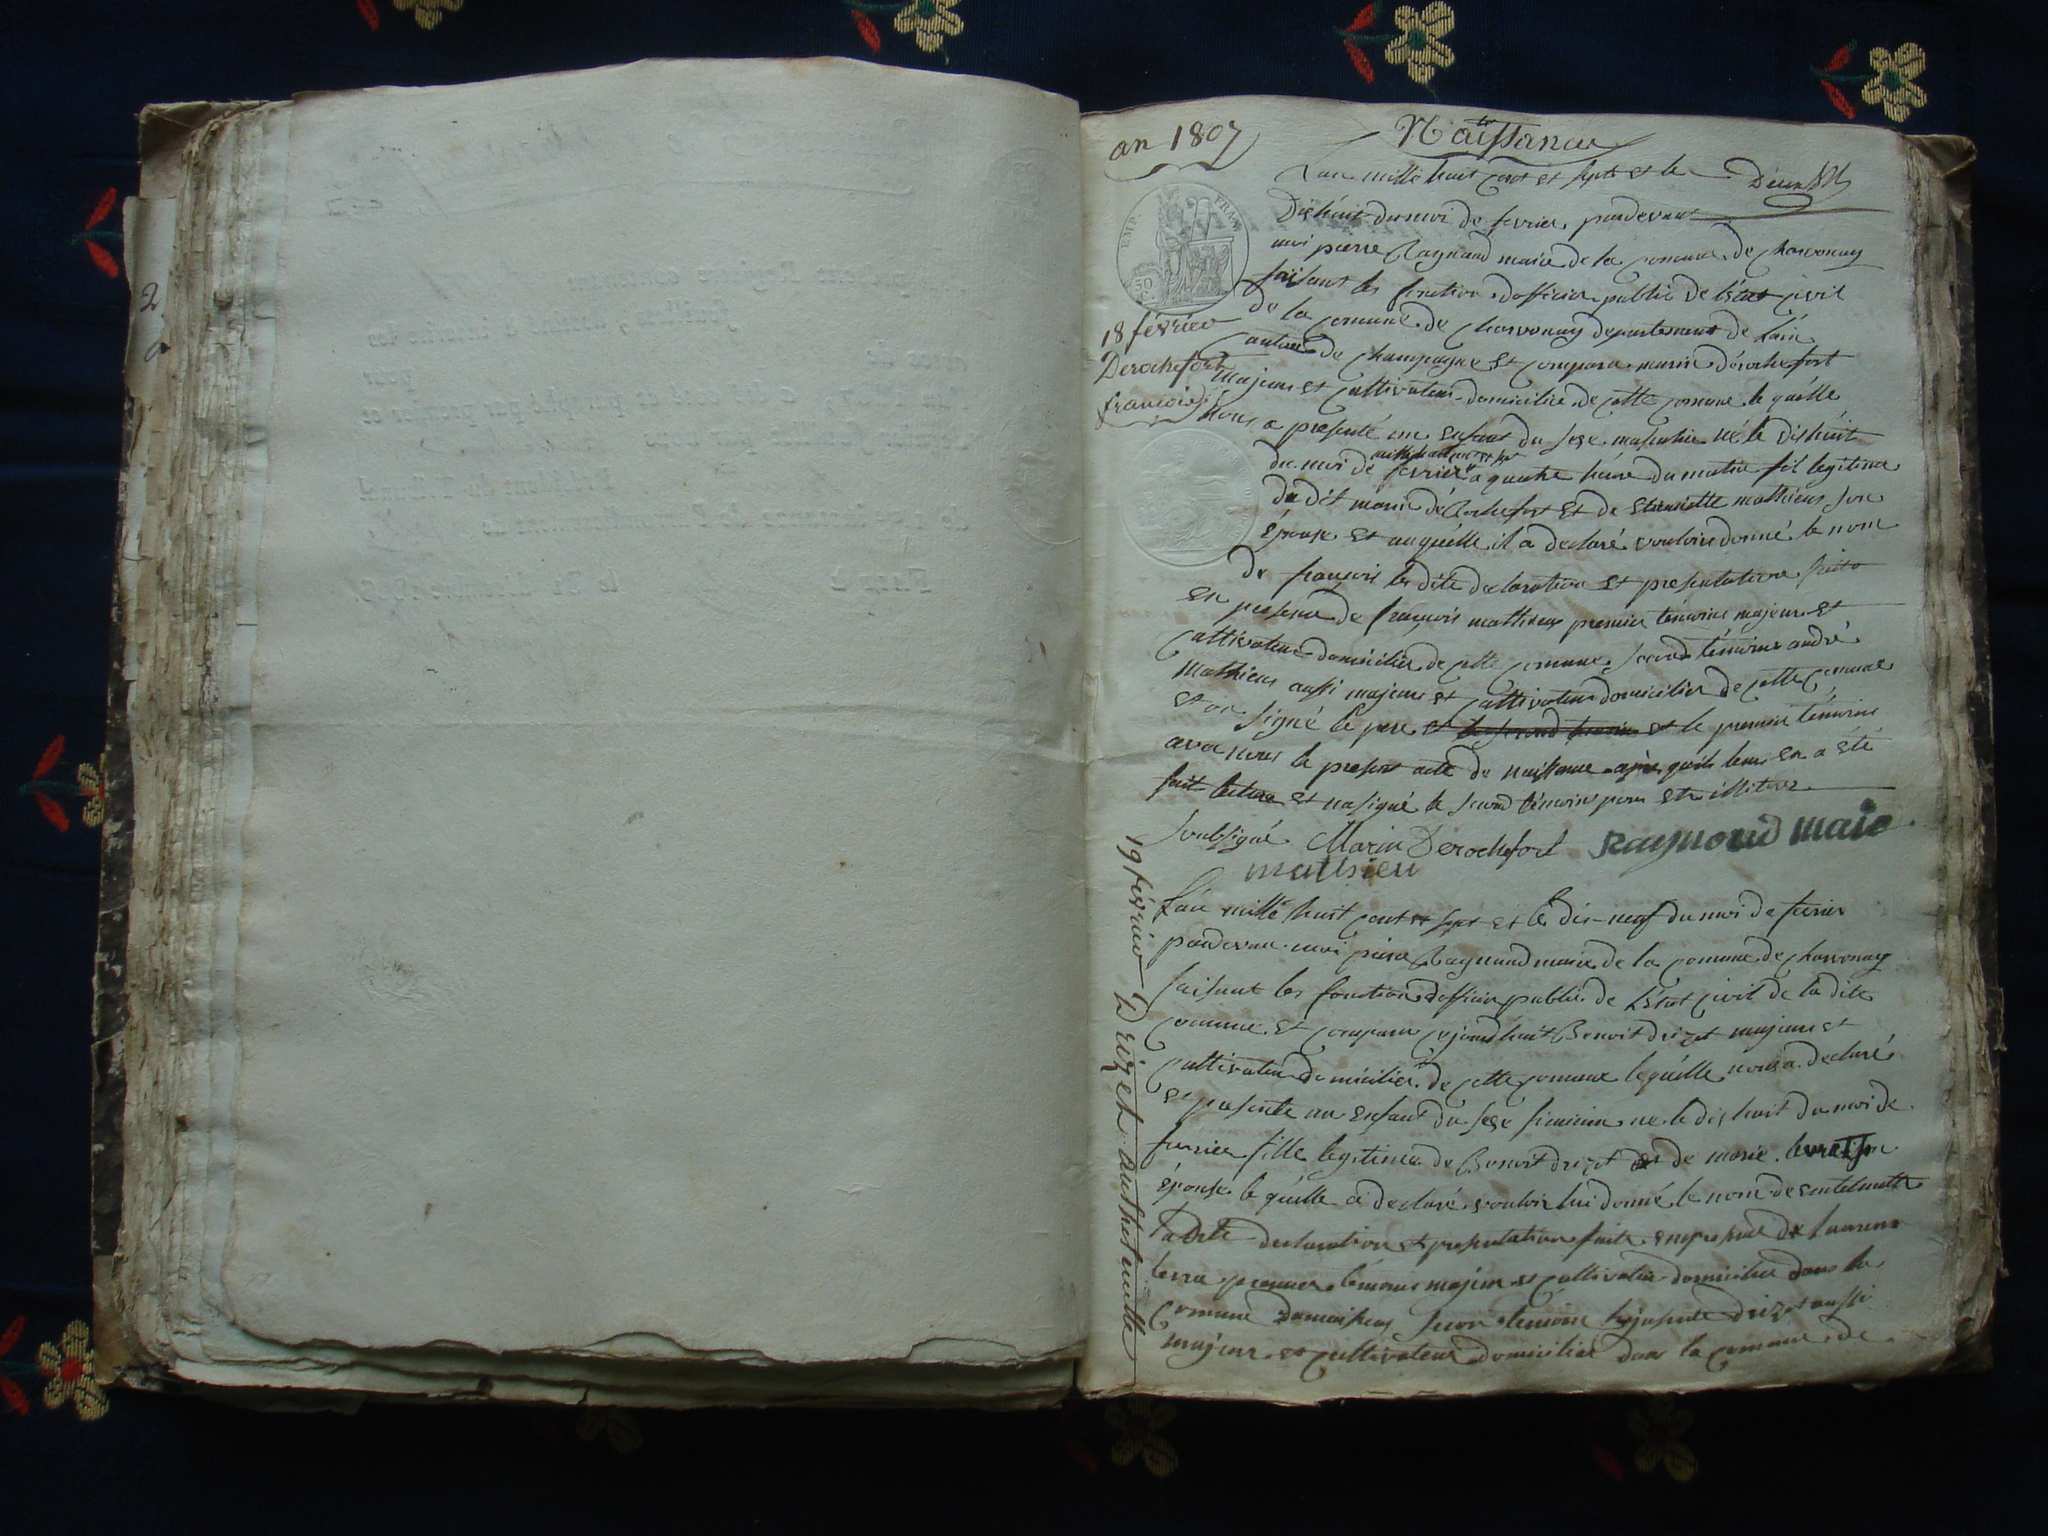 2
an 1807
Naissance
L'an mille huit cent et sept et le
Dishuit du moi de fevrier pardevant
moi pierre Raynaud maire de la comune de charvonay
faisant les fonction dofficier public de létat civil
de la comune de charvonay departement de lain
canton de champagne et comparu marin dérochefort
majeur et cultivateur domicilié de cette comune le quélle
nous a presenté un enfant du sexe masculin né le dishuit
du moi de fevrier a quatre heure du matin fil legitime
du dit marin déRochefort et de mathieu son
épouse et auquélle il a declaré vouloir donné le nom
de françois les dite declaration et presentation faite
en presence de françois mathieu premier témoins majeur et
cultivateur domicilié de cette comune second témoins andré
mathieu aussi majeur et cultivateur domicilié de cette comune
et on signé le pere et le second temoin et le premier témoins
avec nous le present acte de naissance apres quil leur en a été
fait lecture et na signé le second témoins pour etre illitere
soubsigné Marin Derochefort Raynoud maie
mathieu
18 février
Derochefort
françois
EMP. FRAN.
50
L'an mille huit cent et sept et le dis-neuf du moi de fevrier
pardevant moi piere Raynaud maire de la comune de charvonay
faisant les fonction dofficier public de létat civil de la dite
comune et comparu cejourdhuit Benoit drizet majeur et
cultivateur domicilié de cette comune lequélle nous a declaré
et presenté un enfant du sexe feminin né le dishuit du moi de
fevrier fille legitime de Benoit drizet et de marie
épouse le quélle a declaré vouloir lui donné le nom de
Ladite declaration et presentation faite en presence de
premier témoins majeur et cultivateur domicilié dans la
comune second temoins drizet aussi
majeur et cultivateur domicilié dans la comune de
19 février Drizet anthelmette